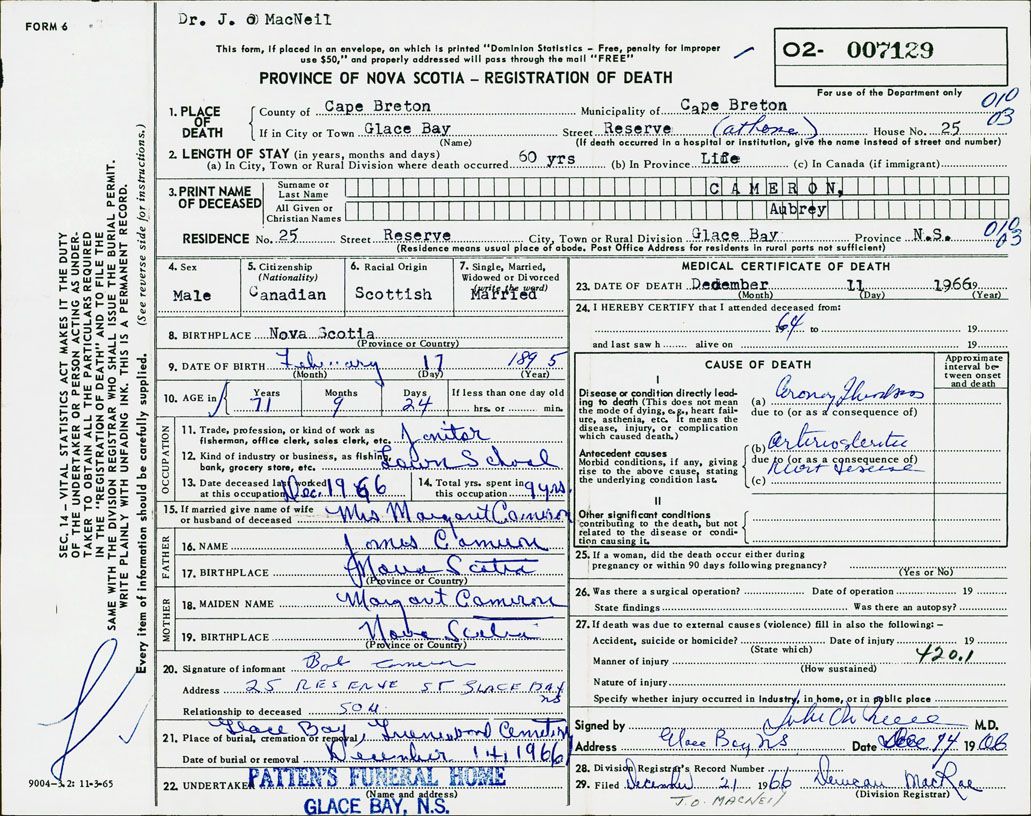 FORM 6
Dr. J. @ MacNeil
This form, if placed in an envelope, on which is printed "Dominion Statistics – Free, penalty for improper
use $50," and properly addressed will pass through the mail "FREE"
O2- 007129
PROVINCE OF NOVA SCOTIA – REGISTRATION OF DEATH
For use of the Department only
010
03
1. PLACE OF DEATH
County of Cape Breton Municipality of Cape Breton
If in City or Town Glace Bay Street Reserve (at home) House No. 25
(Name) (If death occurred in a hospital or institution, give the name instead of street and number)
2. LENGTH OF STAY (in years, months and days)
(a) In City, Town or Rural Division where death occurred 60 yrs (b) In Province Life (c) In Canada (if immigrant)
3. PRINT NAME OF DECEASED
Surname or Last Name CAMERON,
All Given or Christian Names Aubrey
RESIDENCE No. 25 Street Reserve City, Town or Rural Division Glace Bay Province N.S. 010 03
(Residence means usual place of abode. Post Office Address for residents in rural parts not sufficient)
4. Sex
Male
5. Citizenship (Nationality)
Canadian
6. Racial Origin
Scottish
7. Single, Married, Widowed or Divorced (write the word)
Married
8. BIRTHPLACE Nova Scotia
(Province or Country)
9. DATE OF BIRTH February 17 1895
(Month) (Day) (Year)
10. AGE in Years Months Days If less than one day old
71 9 24 hrs. or min.
OCCUPATION
11. Trade, profession, or kind of work as
fisherman, office clerk, sales clerk, etc. Janitor
12. Kind of industry or business, as fishing,
bank, grocery store, etc. School
13. Date deceased last worked
at this occupation Dec. 1966
14. Total yrs. spent in
this occupation 9 yrs.
15. If married give name of wife
or husband of deceased Mrs Margaret Cameron
FATHER
16. NAME James Cameron
17. BIRTHPLACE Nova Scotia
(Province or Country)
MOTHER
18. MAIDEN NAME Margaret Cameron
19. BIRTHPLACE Nova Scotia
(Province or Country)
20. Signature of informant Bob Cameron
Address 25 RESERVE ST GLACE BAY NS
Relationship to deceased SON
21. Place of burial, cremation or removal Glace Bay, Greenwood Cemetery
Date of burial or removal December 14, 1966
22. UNDERTAKER PATTEN'S FUNERAL HOME
(Name and address)
GLACE BAY, N.S.
MEDICAL CERTIFICATE OF DEATH
23. DATE OF DEATH December 11 1966 19
(Month) (Day) (Year)
24. I HEREBY CERTIFY that I attended deceased from:
64 to 19
and last saw h alive on 19
CAUSE OF DEATH
Approximate interval between onset and death
I
Disease or condition directly leading to death (This does not mean
the mode of dying, e.g., heart failure, asthenia, etc. It means the
disease, injury, or complication
which caused death.)
(a) Coronary Thrombosis
due to (or as a consequence of)
Antecedent causes
Morbid conditions, if any, giving
rise to the above cause, stating
the underlying condition last.
(b) Arteriosclerotic
due to (or as a consequence of)
Heart Disease
(c)
II
Other significant conditions
contributing to the death, but not
related to the disease or condition causing it.
25. If a woman, did the death occur either during
pregnancy or within 90 days following pregnancy?
(Yes or No)
26. Was there a surgical operation? Date of operation 19
State findings Was there an autopsy?
27. If death was due to external causes (violence) fill in also the following: –
Accident, suicide or homicide? Date of injury 19
(State which)
420.1
Manner of injury
(How sustained)
Nature of injury
Specify whether injury occurred in industry, in home, or in public place
Signed by M.D.
Address Glace Bay, NS Date Dec 14 1966
28. Division Registrar's Record Number
29. Filed December 21 1966 Duncan MacRae
(Division Registrar)
J.O. MACNEIL
9004-3.2: 11-3-65
SEC. 14 – VITAL STATISTICS ACT MAKES IT THE DUTY
OF THE UNDERTAKER OR PERSON ACTING AS UNDER-
TAKER TO OBTAIN ALL THE PARTICULARS REQUIRED
IN THE "REGISTRATION OF DEATH" AND TO FILE THE
SAME WITH THE DIVISION REGISTRAR WHO SHALL ISSUE THE BURIAL PERMIT.
WRITE PLAINLY WITH UNFADING INK. THIS IS A PERMANENT RECORD.
Every item of information should be carefully supplied. (See reverse side for instructions.)